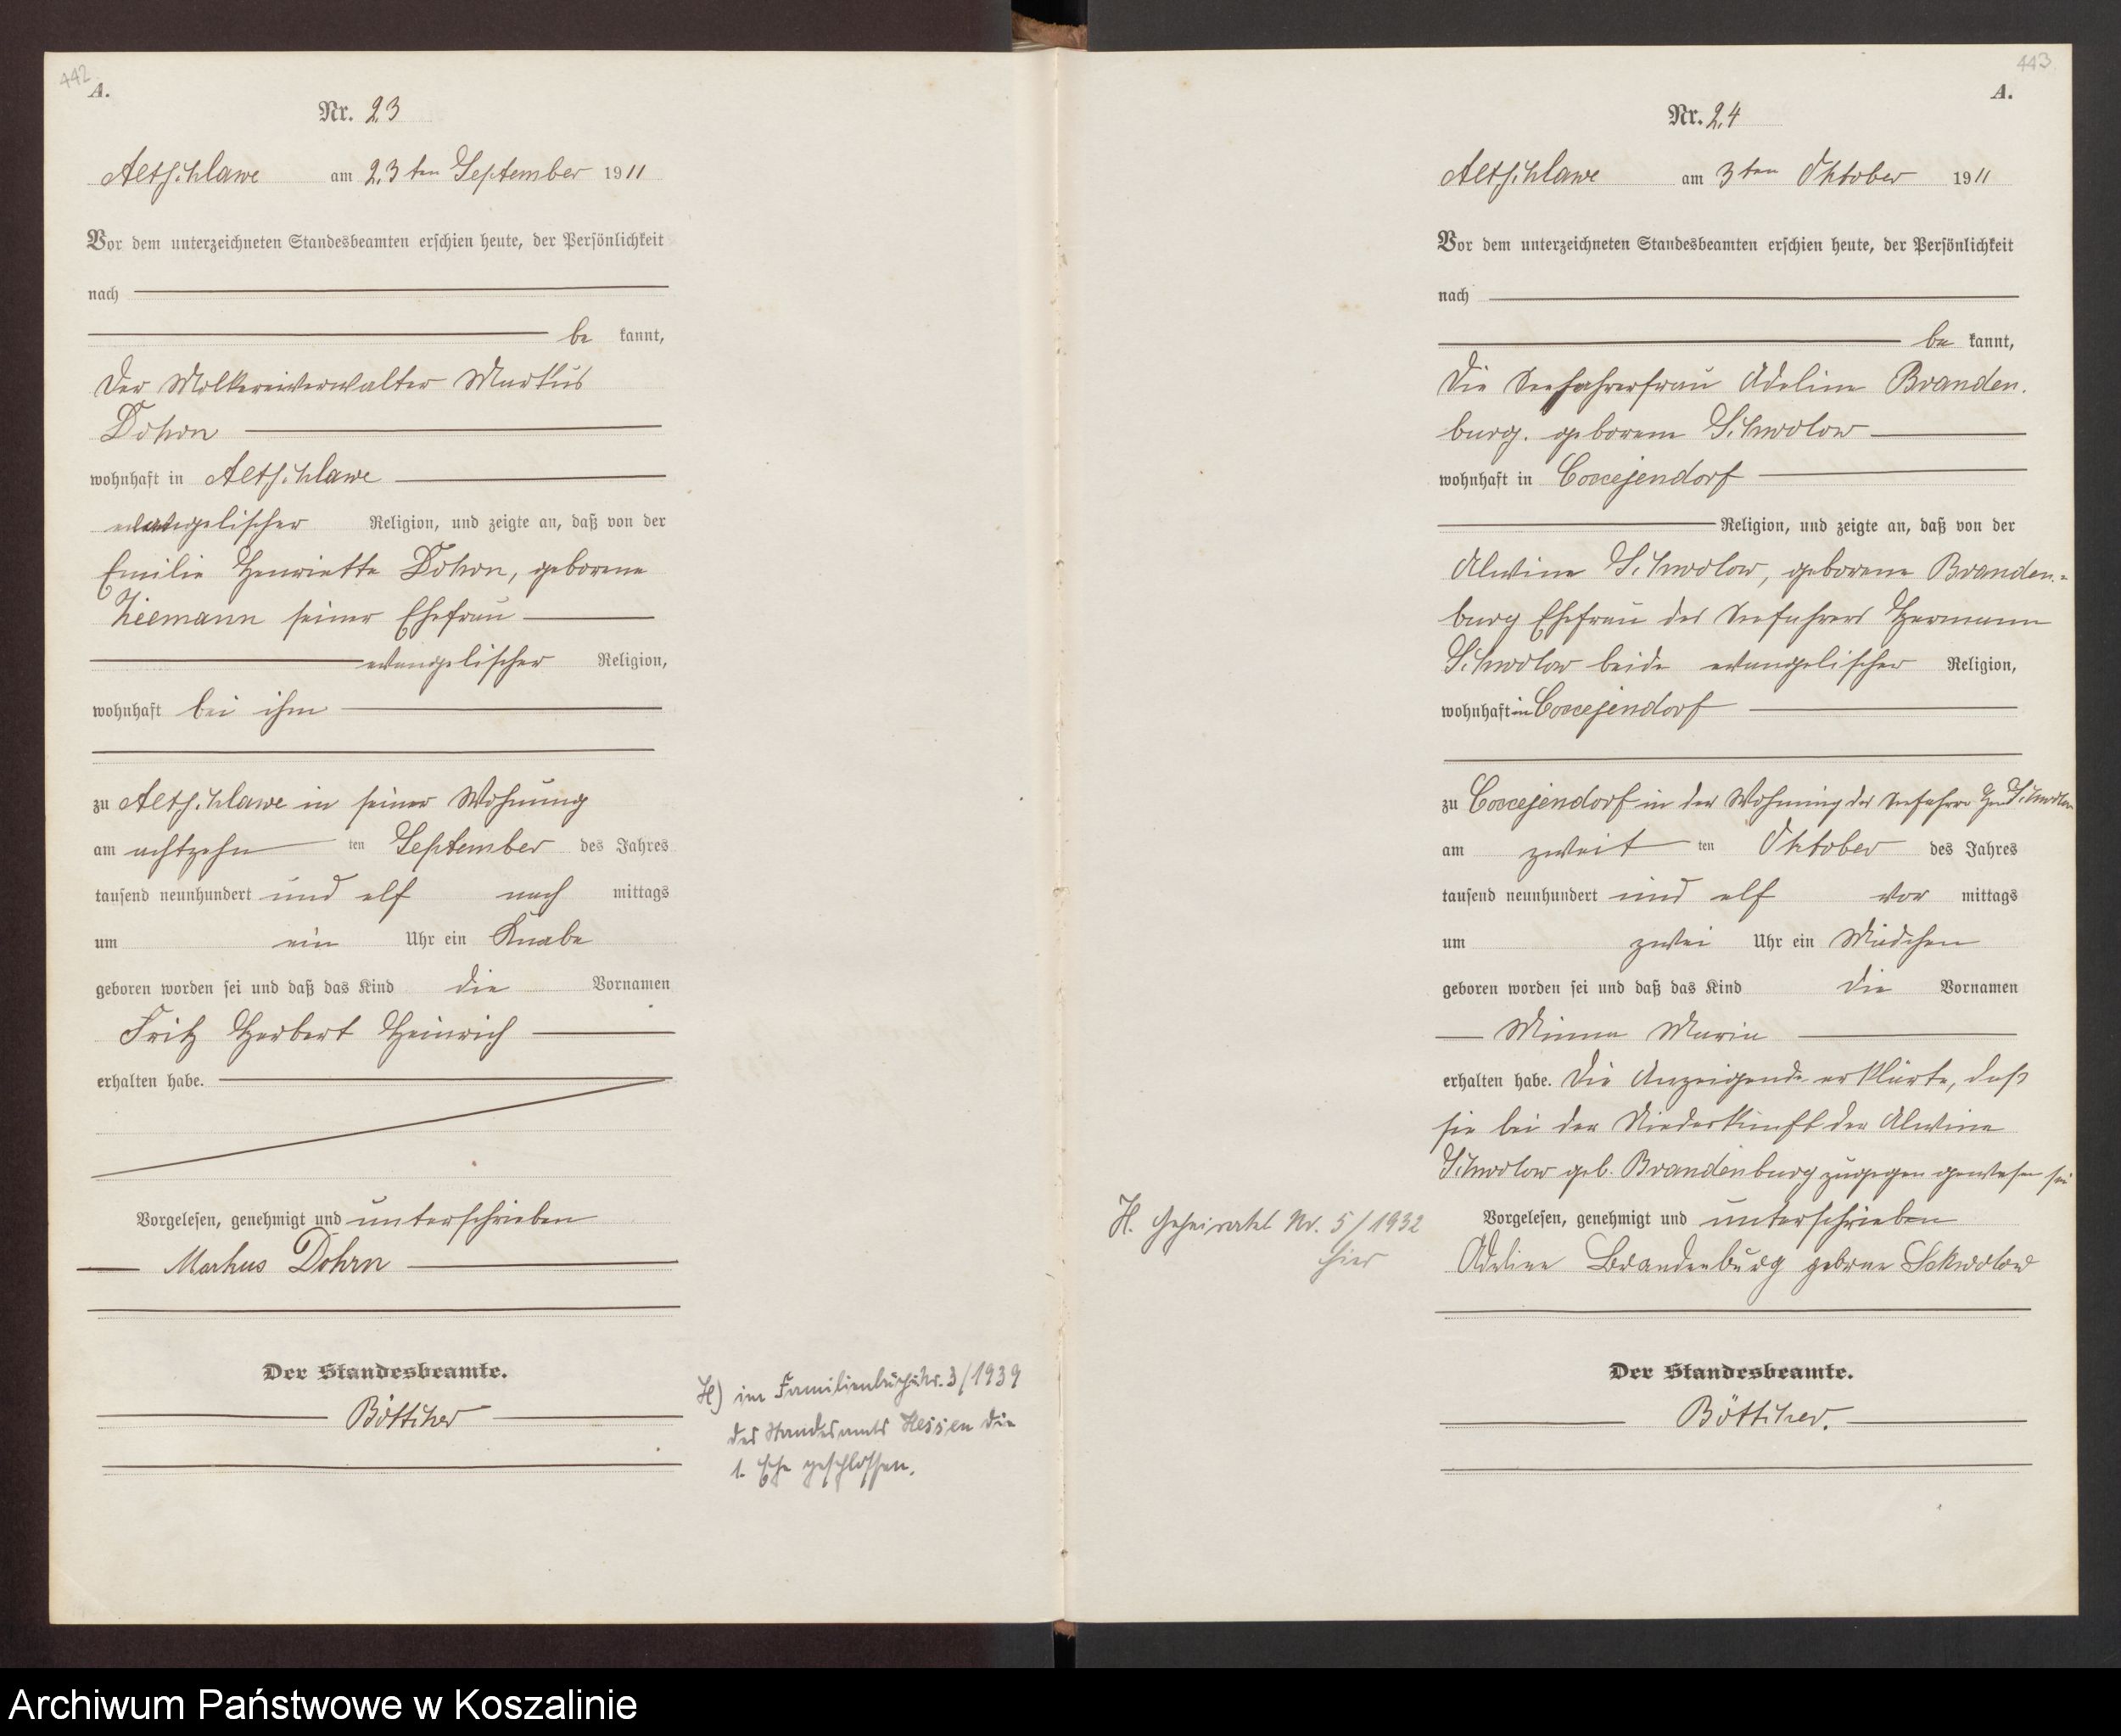 442
A.
Nr. 23
Altschlawe am 23ten September 1911
Vor dem unterzeichneten Standesbeamten erschien heute, der Persönlichkeit
nach
be kannt,
der Molkereiverwalter Markus
Dohrn
wohnhaft in Altschlawe
evangelischer Religion, und zeigte an, daß von der
Emilie Henriette Dohrn, geborene
Ziemann seiner Ehefrau
evangelischer Religion,
wohnhaft bei ihm
zu Altschlawe in seiner Wohnung
am achtzehn ten September des Jahres
tausend neunhundert und elf nach mittags
um ein Uhr ein Knabe
geboren worden sei und daß das Kind die Vornamen
Fritz Herbert Heinrich
erhalten habe.
Vorgelesen, genehmigt und unterschrieben
Markus Dohrn
Der Standesbeamte.
Böttcher
H) im Familienbuch Nr. 3/1939
des Standesamts Hessen die
1. Ehe geschlossen.
443
A.
Nr. 24
Altschlawe am 3ten Oktober 1911
Vor dem unterzeichneten Standesbeamten erschien heute, der Persönlichkeit
nach
be kannt,
die Seefahrerfrau Adeline Branden-
burg. geborene Schwolow
wohnhaft in Coccejendorf
Religion, und zeigte an, daß von der
Alwine Schwolow, geborene Branden-
burg Ehefrau des Seefahrers Hermann
Schwolow beide evangelischer Religion,
wohnhaft in Coccejendorf
zu Coccejendorf in der Wohnung des Seefahrer Her Schwolow
am zweit ten Oktober des Jahres
tausend neunhundert und elf vor mittags
um zwei Uhr ein Mädchen
geboren worden sei und daß das Kind die Vornamen
Minna Marie
erhalten habe. Die Anzeigende erklärte, daß
sie bei der Niederkunft der Alwine
Schwolow geb. Brandenburg zugegen gewesen sei
Vorgelesen, genehmigt und unterschrieben
Adeline Brandenburg geborne Schwolow
H. Geheiratet Nr. 5/1932
hier
Der Standesbeamte.
Böttcher.
Archiwum Państwowe w Koszalinie